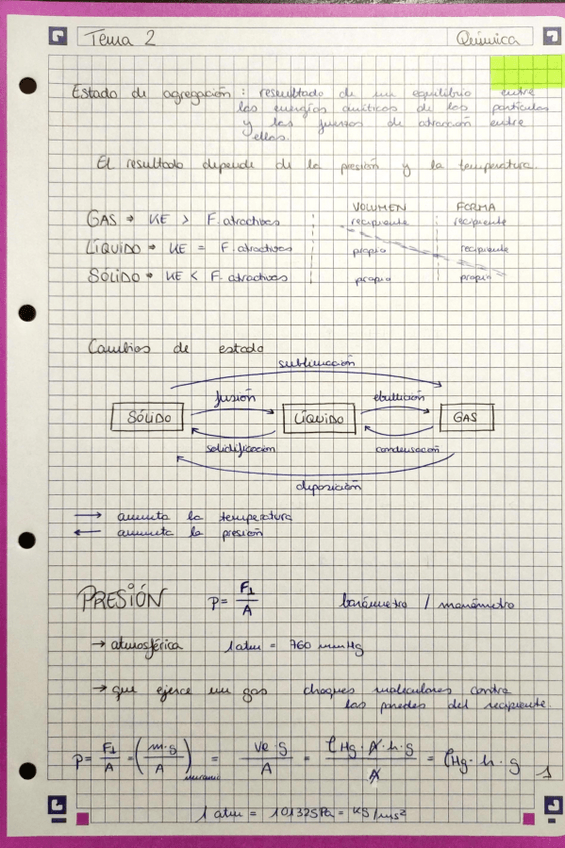 Tema 2
Química
Estado de agregación : resultado de un equilibrio entre
las energías cinéticas de las partículas
y las fuerzas de atracción entre
ellas.
El resultado depende de la presión y la temperatura.
VOLUMEN FORMA
GAS → KE > F. atractivas recipiente recipiente
LÍQUIDO → KE = F. atractivas propio recipiente
SÓLIDO → KE < F. atractivas propio propio
Cambios de estado
sublimación
fusión ebullición
SÓLIDO LÍQUIDO GAS
solidificación condensación
deposición
→ aumenta la temperatura
← aumenta la presión
PRESIÓN P = F⊥/A barómetro / manómetro
→ atmosférica 1 atm = 760 mmHg
→ que ejerce un gas choques moleculares contra
las paredes del recipiente.
P = F⊥/A = (m·g/A)mercurio = = ρHg·A·h·g/A = ρHg·h·g
1
1 atm = 101325Pa = KS/ms²